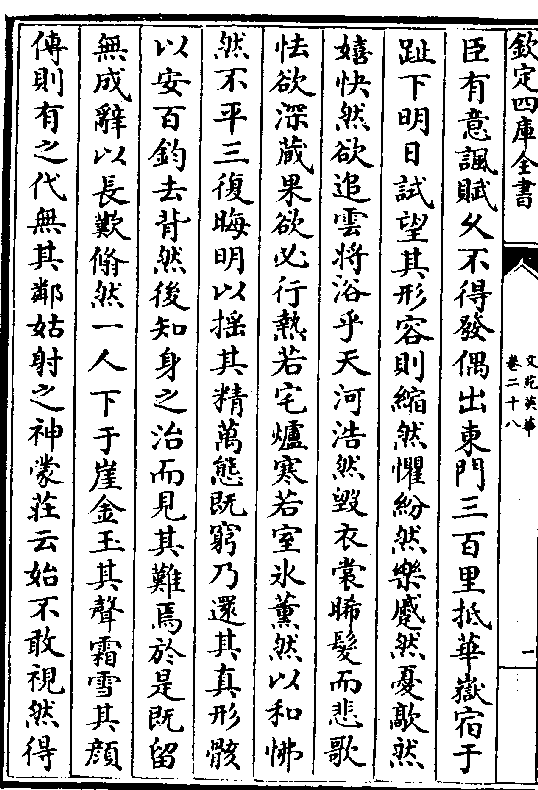 欽定四庫全書
文苑英華
卷二十八
一
臣有意諷賦久不得發偶出東門三百里抵華嶽宿于
趾下明日試望其形容則縮然懼紛然樂蹙然憂歊然
嬉快然欲追雲將浴乎天河浩然毀衣裳晞髮而悲歌
怯欲深藏果欲必行熱若宅爐寒若室冰薫然以和怫
然不平三復晦明以揺其精萬態既窮乃還其真形骸
以安百鈞去背然後知身之治而見其難焉於是既留
無成辭以長歎翛然一人下于崖金玉其聲霜雪其顔
傳則有之代無其鄰姑射之神蒙莊云始不敢視然得